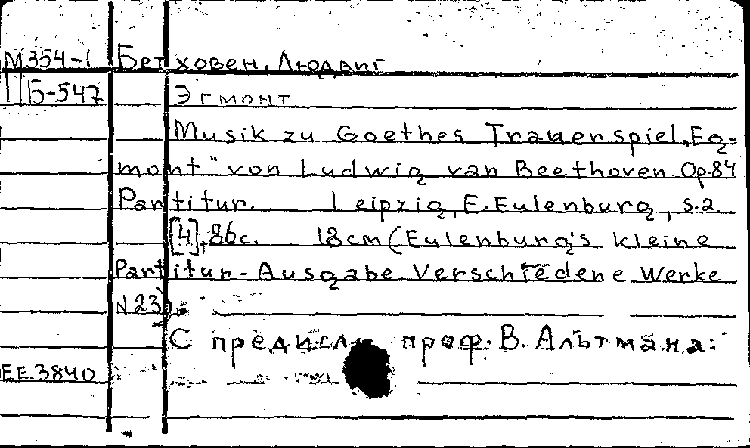 М354-1 Бетховен, Людвиг
Б-547 Эгмонт
Musik zu Goethes Trauerspiel „Eg-
mont" von Ludwig van Beethoven Op.84
Partitur. Leipzig, E. Eulenburg, s.a
[4], 86c. 18cm (Eulenburg's kleine
Partitur-Ausgabe Verschiedene Werke
N23)
С предисл. проф. В. Альтмана.
ЕЕ.3840